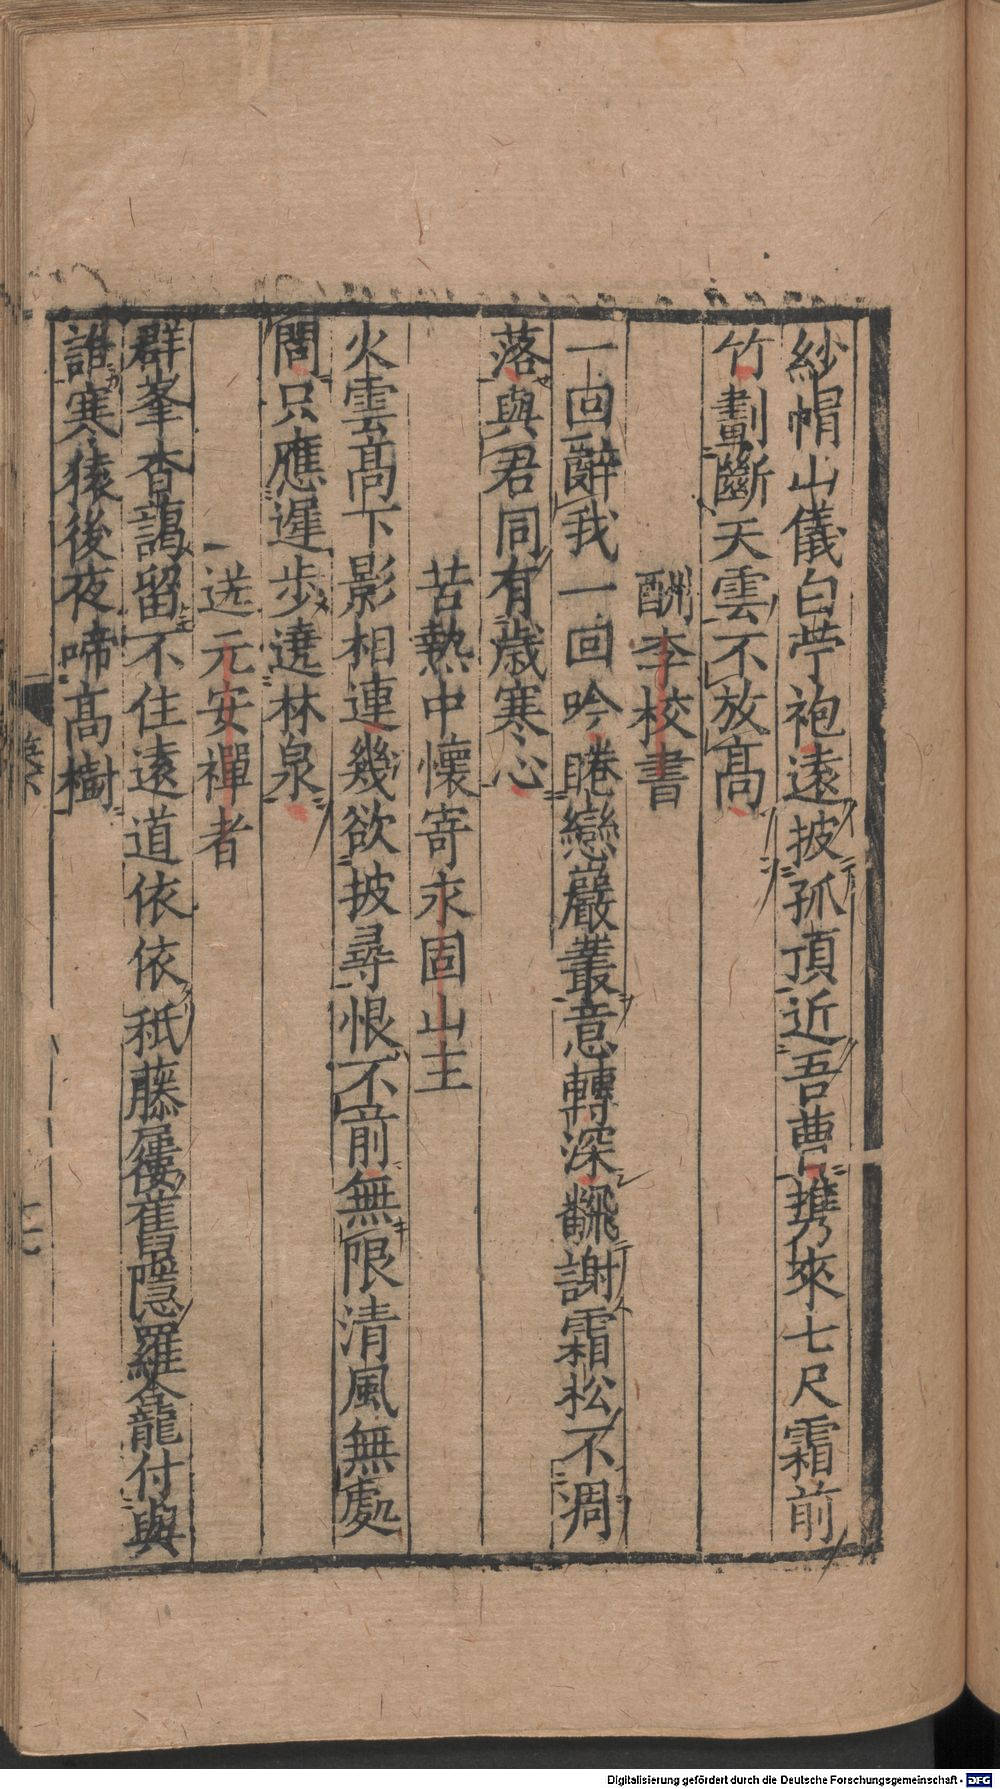 紗帽山儀白苧袍遠披孤頂近吾曹携來七尺霜前
竹劃斷天雲不放髙
酬李校書
一回辭我一回吟睠戀巖叢意轉深飜謝霜松不凋
落與君同有歲寒心
苦熱中懷寄永固山主
火雲高下影相連幾欲披尋恨不前無限清風無處
問只應遲步遶林泉
送元安禪者
群峯杳靄留不住遠道依依秖藤屨舊隱羅龕付與
誰寒猿後夜啼髙樹
Digitalisierung gefördert durch die Deutsche Forschungsgemeinschaft - DFG